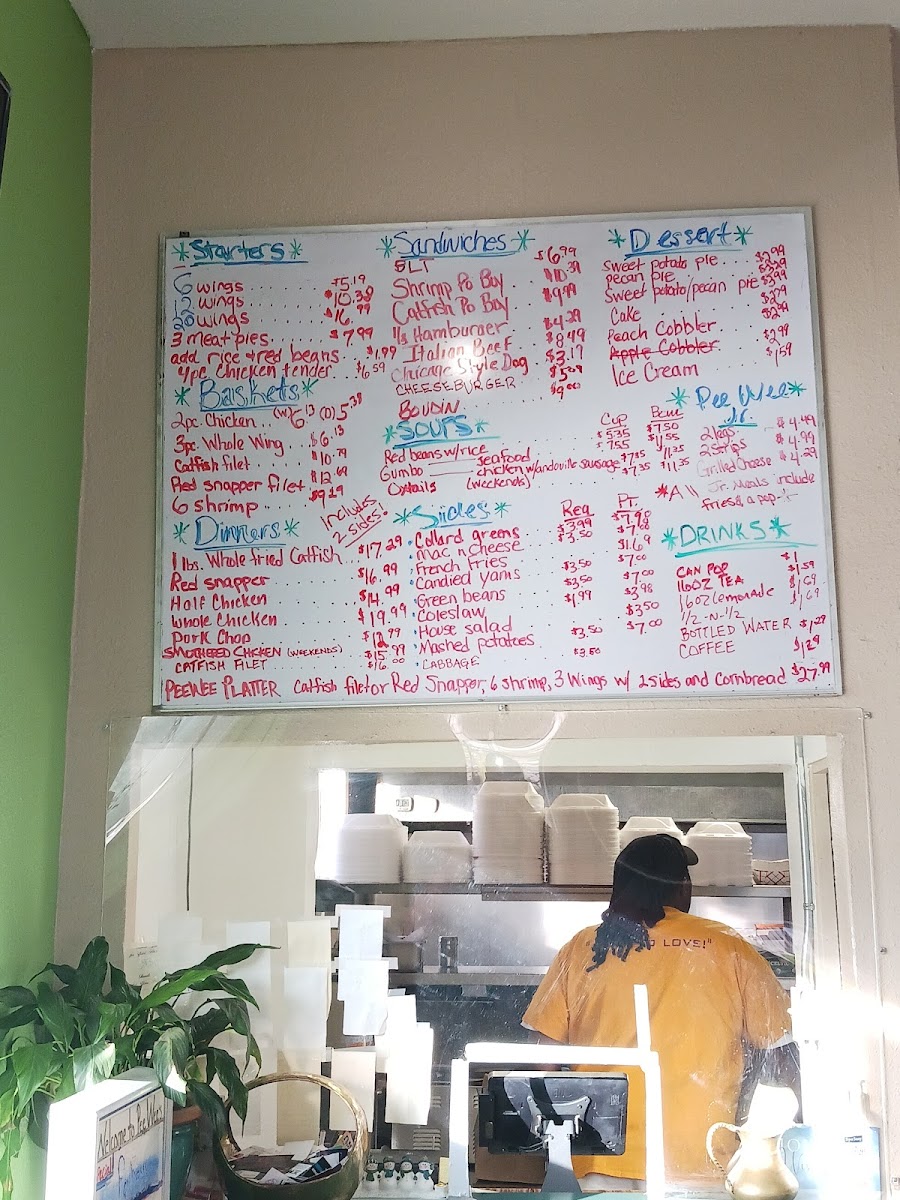 *Starters*
6 wings $5.19
12 wings $10.38
20 wings $16.99
3 meat pies $7.99
add rice & red beans $1.99
4pc chicken tender $6.59
*Baskets*
2pc. Chicken (W) 6.13 (D) 5.38
3pc. Whole Wing $6.13
Catfish filet $10.79
Red snapper filet $12.69
6 shrimp $9.19
*Dinners*
includes 2 sides!
1 lbs. Whole fried Catfish $17.29
Red snapper $16.99
Half Chicken $14.99
Whole Chicken $19.99
Pork Chop $12.99
SMOTHERED CHICKEN (WEEKENDS) $15.99
CATFISH FILET $16.00
*Sandwiches*
BLT $6.99
Shrimp Po Boy $10.39
Catfish Po Boy $9.99
1/3 Hamburger $4.39
Italian Beef $8.49
Chicago Style Dog $3.19
CHEESEBURGER
BOUDIN $9.00
*SOUPS
Cup Bowl
Red beans w/rice $5.35 $7.50
Gumbo seafood 7.55
chicken w/andoville sausage $7.35
Oxtails (weekends) $7.35 $11.35
*Sides*
Reg Pt.
Collard greens $3.99
Mac n cheese $3.50
French fries
Candied yams $3.50
Green beans $3.50
Coleslaw $1.99 $3.98
House salad $3.50
Mashed potatoes $3.50 $7.00
CABBAGE $3.50
*Dessert*
Sweet potato pie $2.99
pecan pie
Sweet potato/pecan pie $3.99
Cake
Peach Cobbler $2.99
Apple Cobbler $2.99
Ice Cream $1.59
*Pee Wee*
Jr.
2 legs $4.49
2 Strips $4.99
Grilled Cheese $4.29
*All Jr. Meals include
fries & a pop
*DRINKS*
CAN POP $1
16OZ TEA $1.59
16oz Lemonade $1.69
1/2-N-1/2 $1.69
BOTTLED WATER $1.29
COFFEE $1.29
PEEWEE PLATTER Catfish filet or Red Snapper, 6 shrimp, 3 Wings w/ 2 sides and Cornbread $27.99
LOVE!"
Welcome to Pee Wee